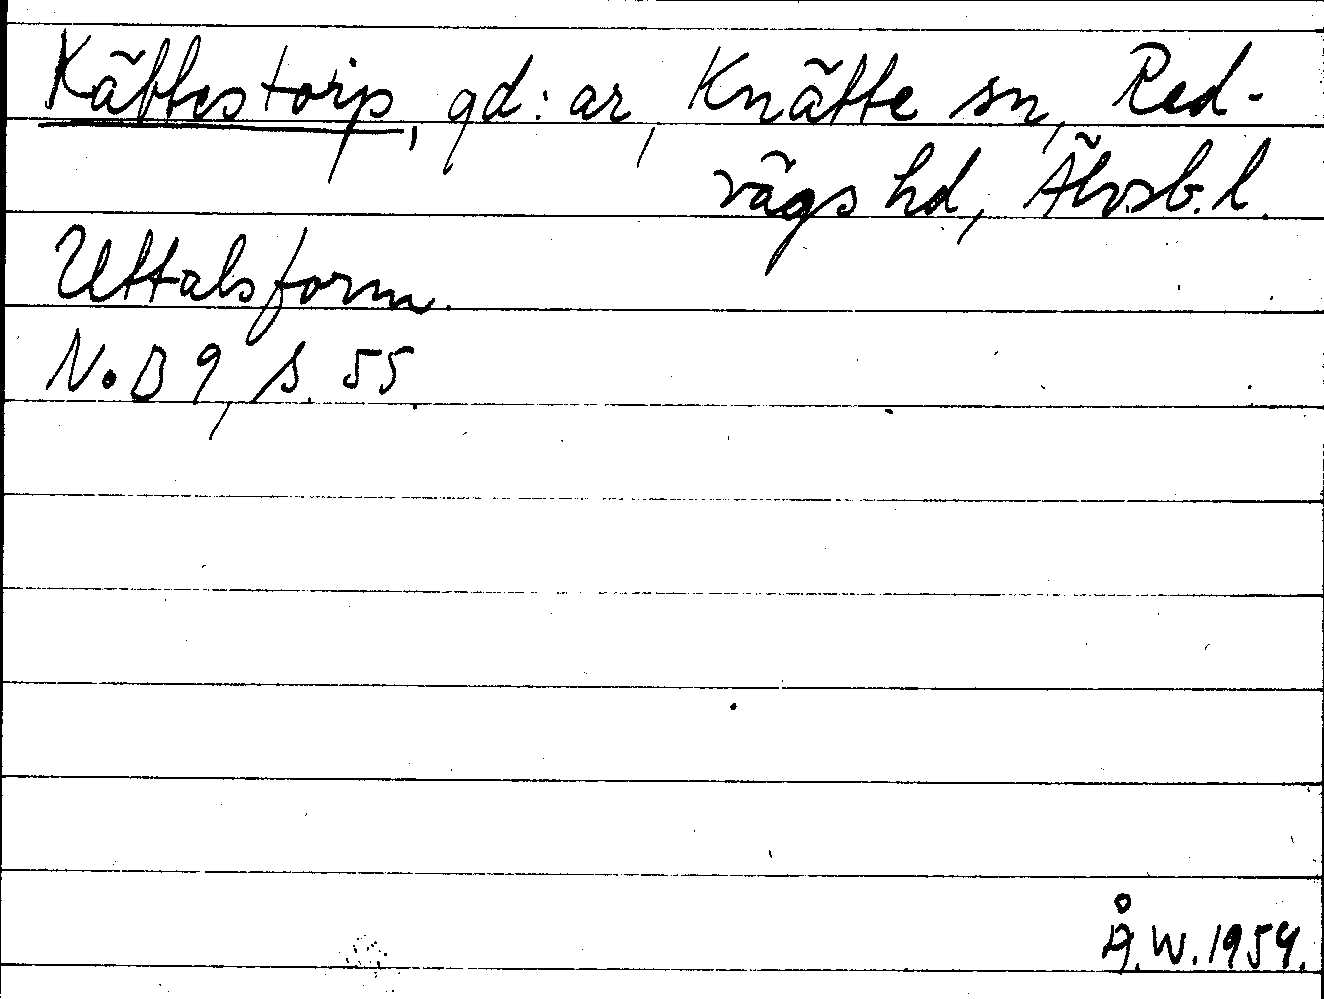 Kättestorp, gd:ar, Knätte sn, Red-
vägs hd, Älvsb.l.
Uttalsform.
NoB 9, s. 55.
Å.W. 1954.